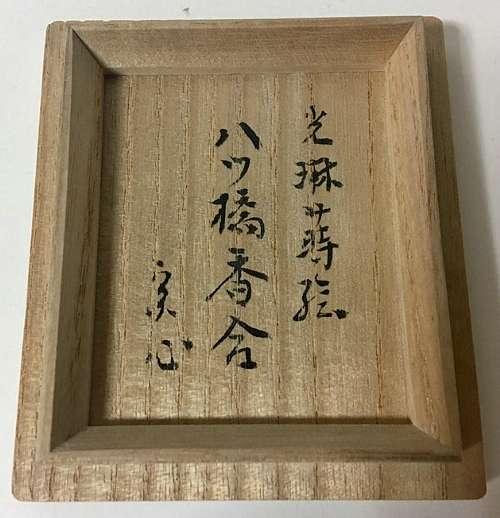 光琳蒔絵
八ツ橋香合
心